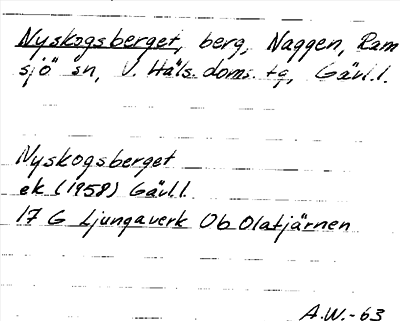 Nyskogsberget, berg, Naggen, Ram
sjö sn, V. Häls. doms. tg, Gävl.l.
Nyskogsberget
ek (1958) Gävl.l.
17 G Ljungaverk Ob Olatjärnen
A.W.-63